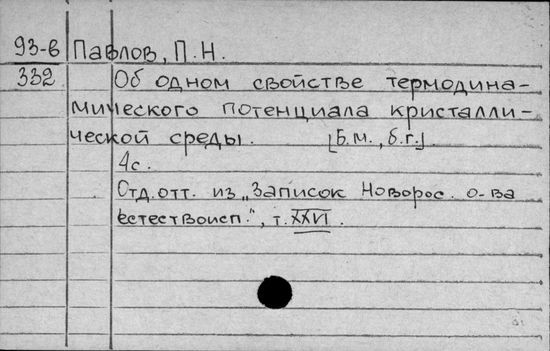 93-6 Павлов, П.Н.
332 Об одном свойстве термодина-
мического потенциала кристалли-
ческой среды. [Б.м., б.г.].
4с.
Отд. отт. из „Записок Новорос. о-ва
естествоисп.", т. XXVI.